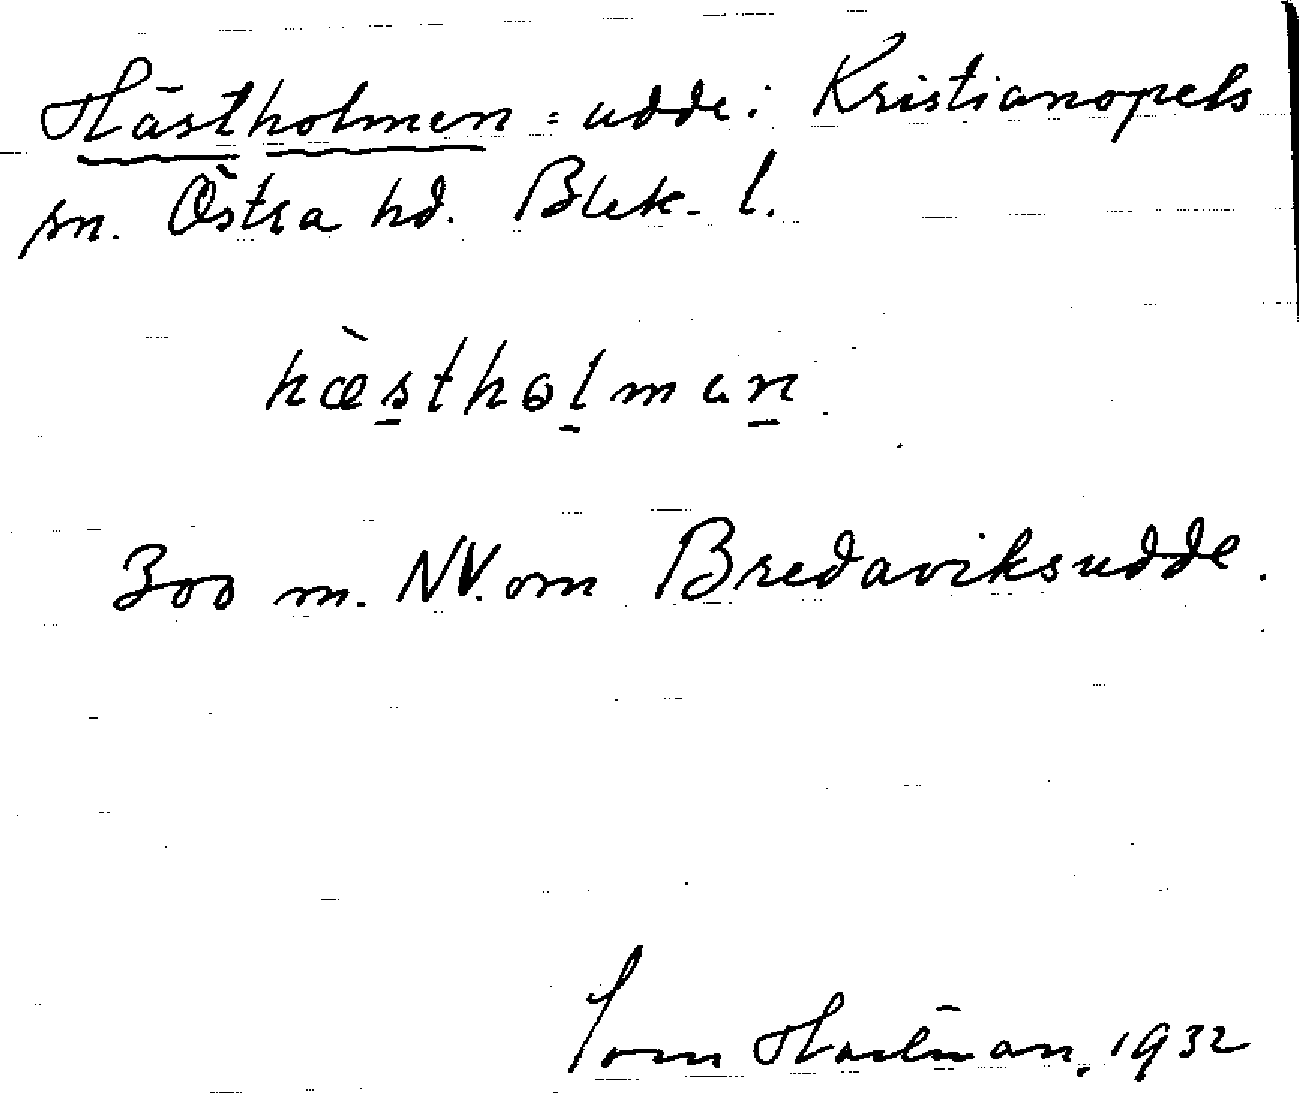 Hästholmen = udde i Kristianopels
sn. Östra hd. Blek. l.
hæ̀stholman.
300 m. NV. om Bredaviksudde.
Tom Hartman, 1932